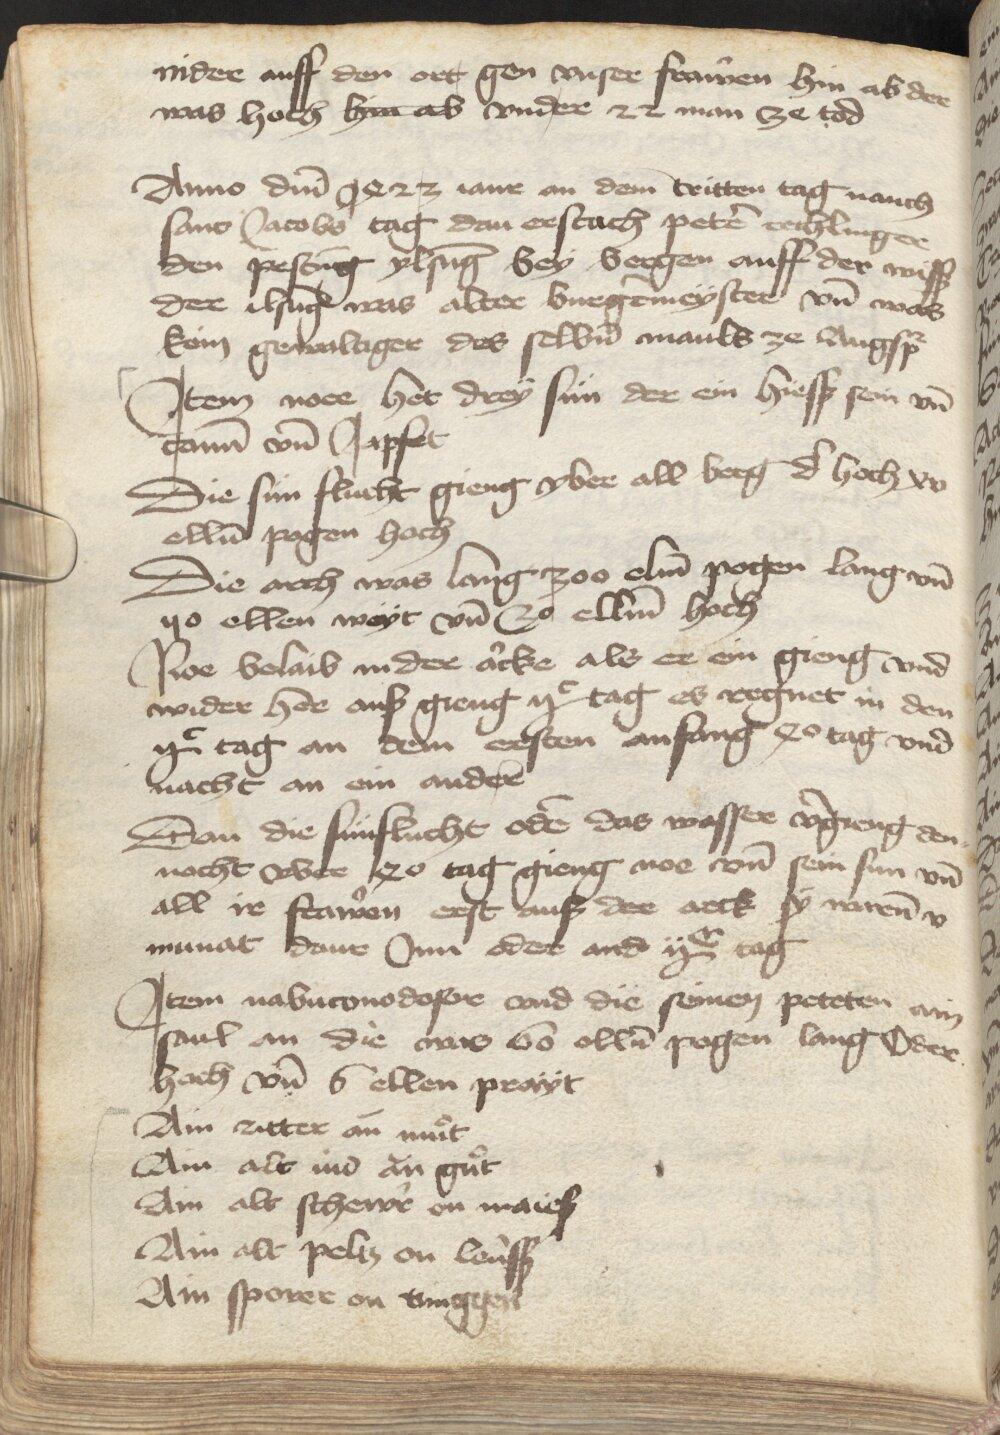 nider auff den ort gen vnser frawen hin ab der
was hoch hin ab vnder 22 man ze tod
Anno dm̄ 1423 iaur an dem tritten tag nauch
sant Jacobs tag dau erstach peter
den ylsūg bey bergen auff der wiss
der ilsūg was alter burgermeyster vn̄ was
kein gewaltiger des selbn̄ mauls ze augspr
Item noee het drey sün der ein hiess sem vn̄
cam̄ vn̄ Japhet
Die sün flucht gieng yber all berg d hoch xv
elln̄ pogen hoch
Die arch was lang 300 eln̄ pogen lang vn̄
50 ellen weyt vn̄ 30 elln̄ hoch
Noe belaib in der arcke als er ein gieng vnd
wider her auss gieng tag es regnet in den
tag an dem ersten anfang 40 tag vnd
nacht an ein ander
Dau die sünflucht oder das wasser vergieng den-
nocht yber 40 tag gieng noe vn̄ sein sun vn̄
all ir frawen erst auss der arck sy warn̄ v
munat daur Jnn oder and tag
Item nabuconodosor vnd die seinen peteten ain
saul an die was 60 elln̄ pogen lang Oder
hoch vn̄ 6 ellen prayt
Ain ritter an muͦt
Ain alt iud an guͦt
Ain alt schewr on maiess
Ain alt peltz on leuss
Ain sporer on